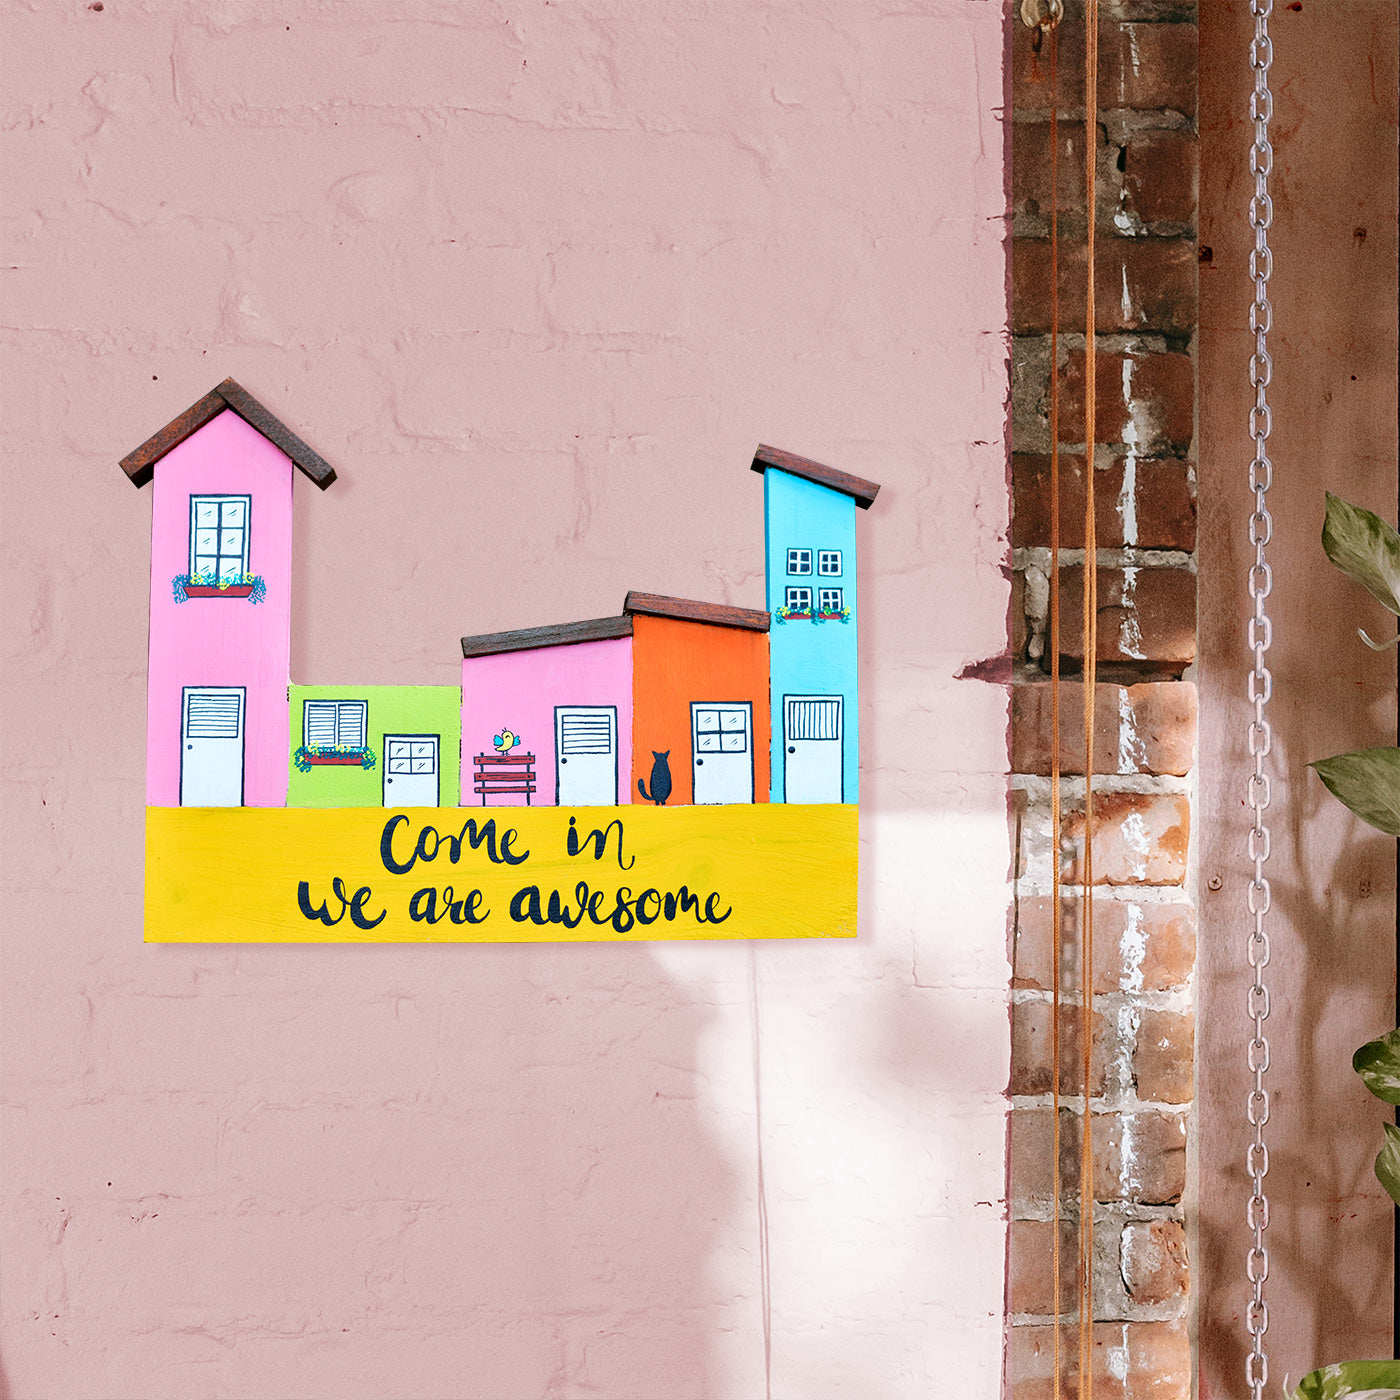 Come in
We are awesome